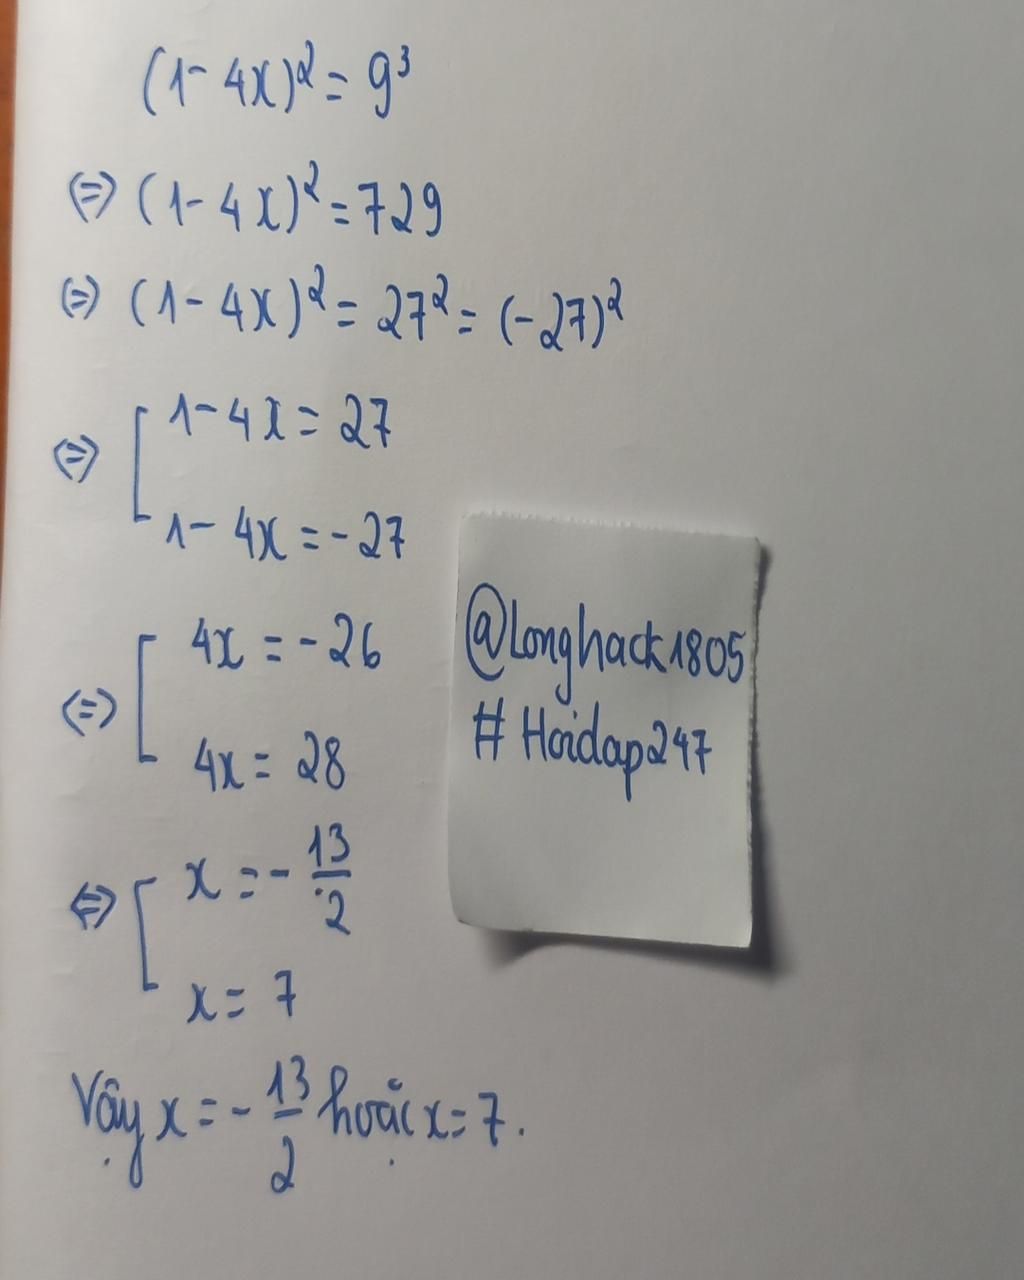 (1-4x)² = 9³
⇔ (1-4x)² = 729
⇔ (1-4x)² = 27² = (-27)²
⇔ [ 1-4x = 27
1-4x = -27
⇔ [ 4x = -26
4x = 28
⇔ [ x = -13/2
x = 7
Vậy x = -13/2 hoặc x = 7.
@Longhack1805
# Hoidap247